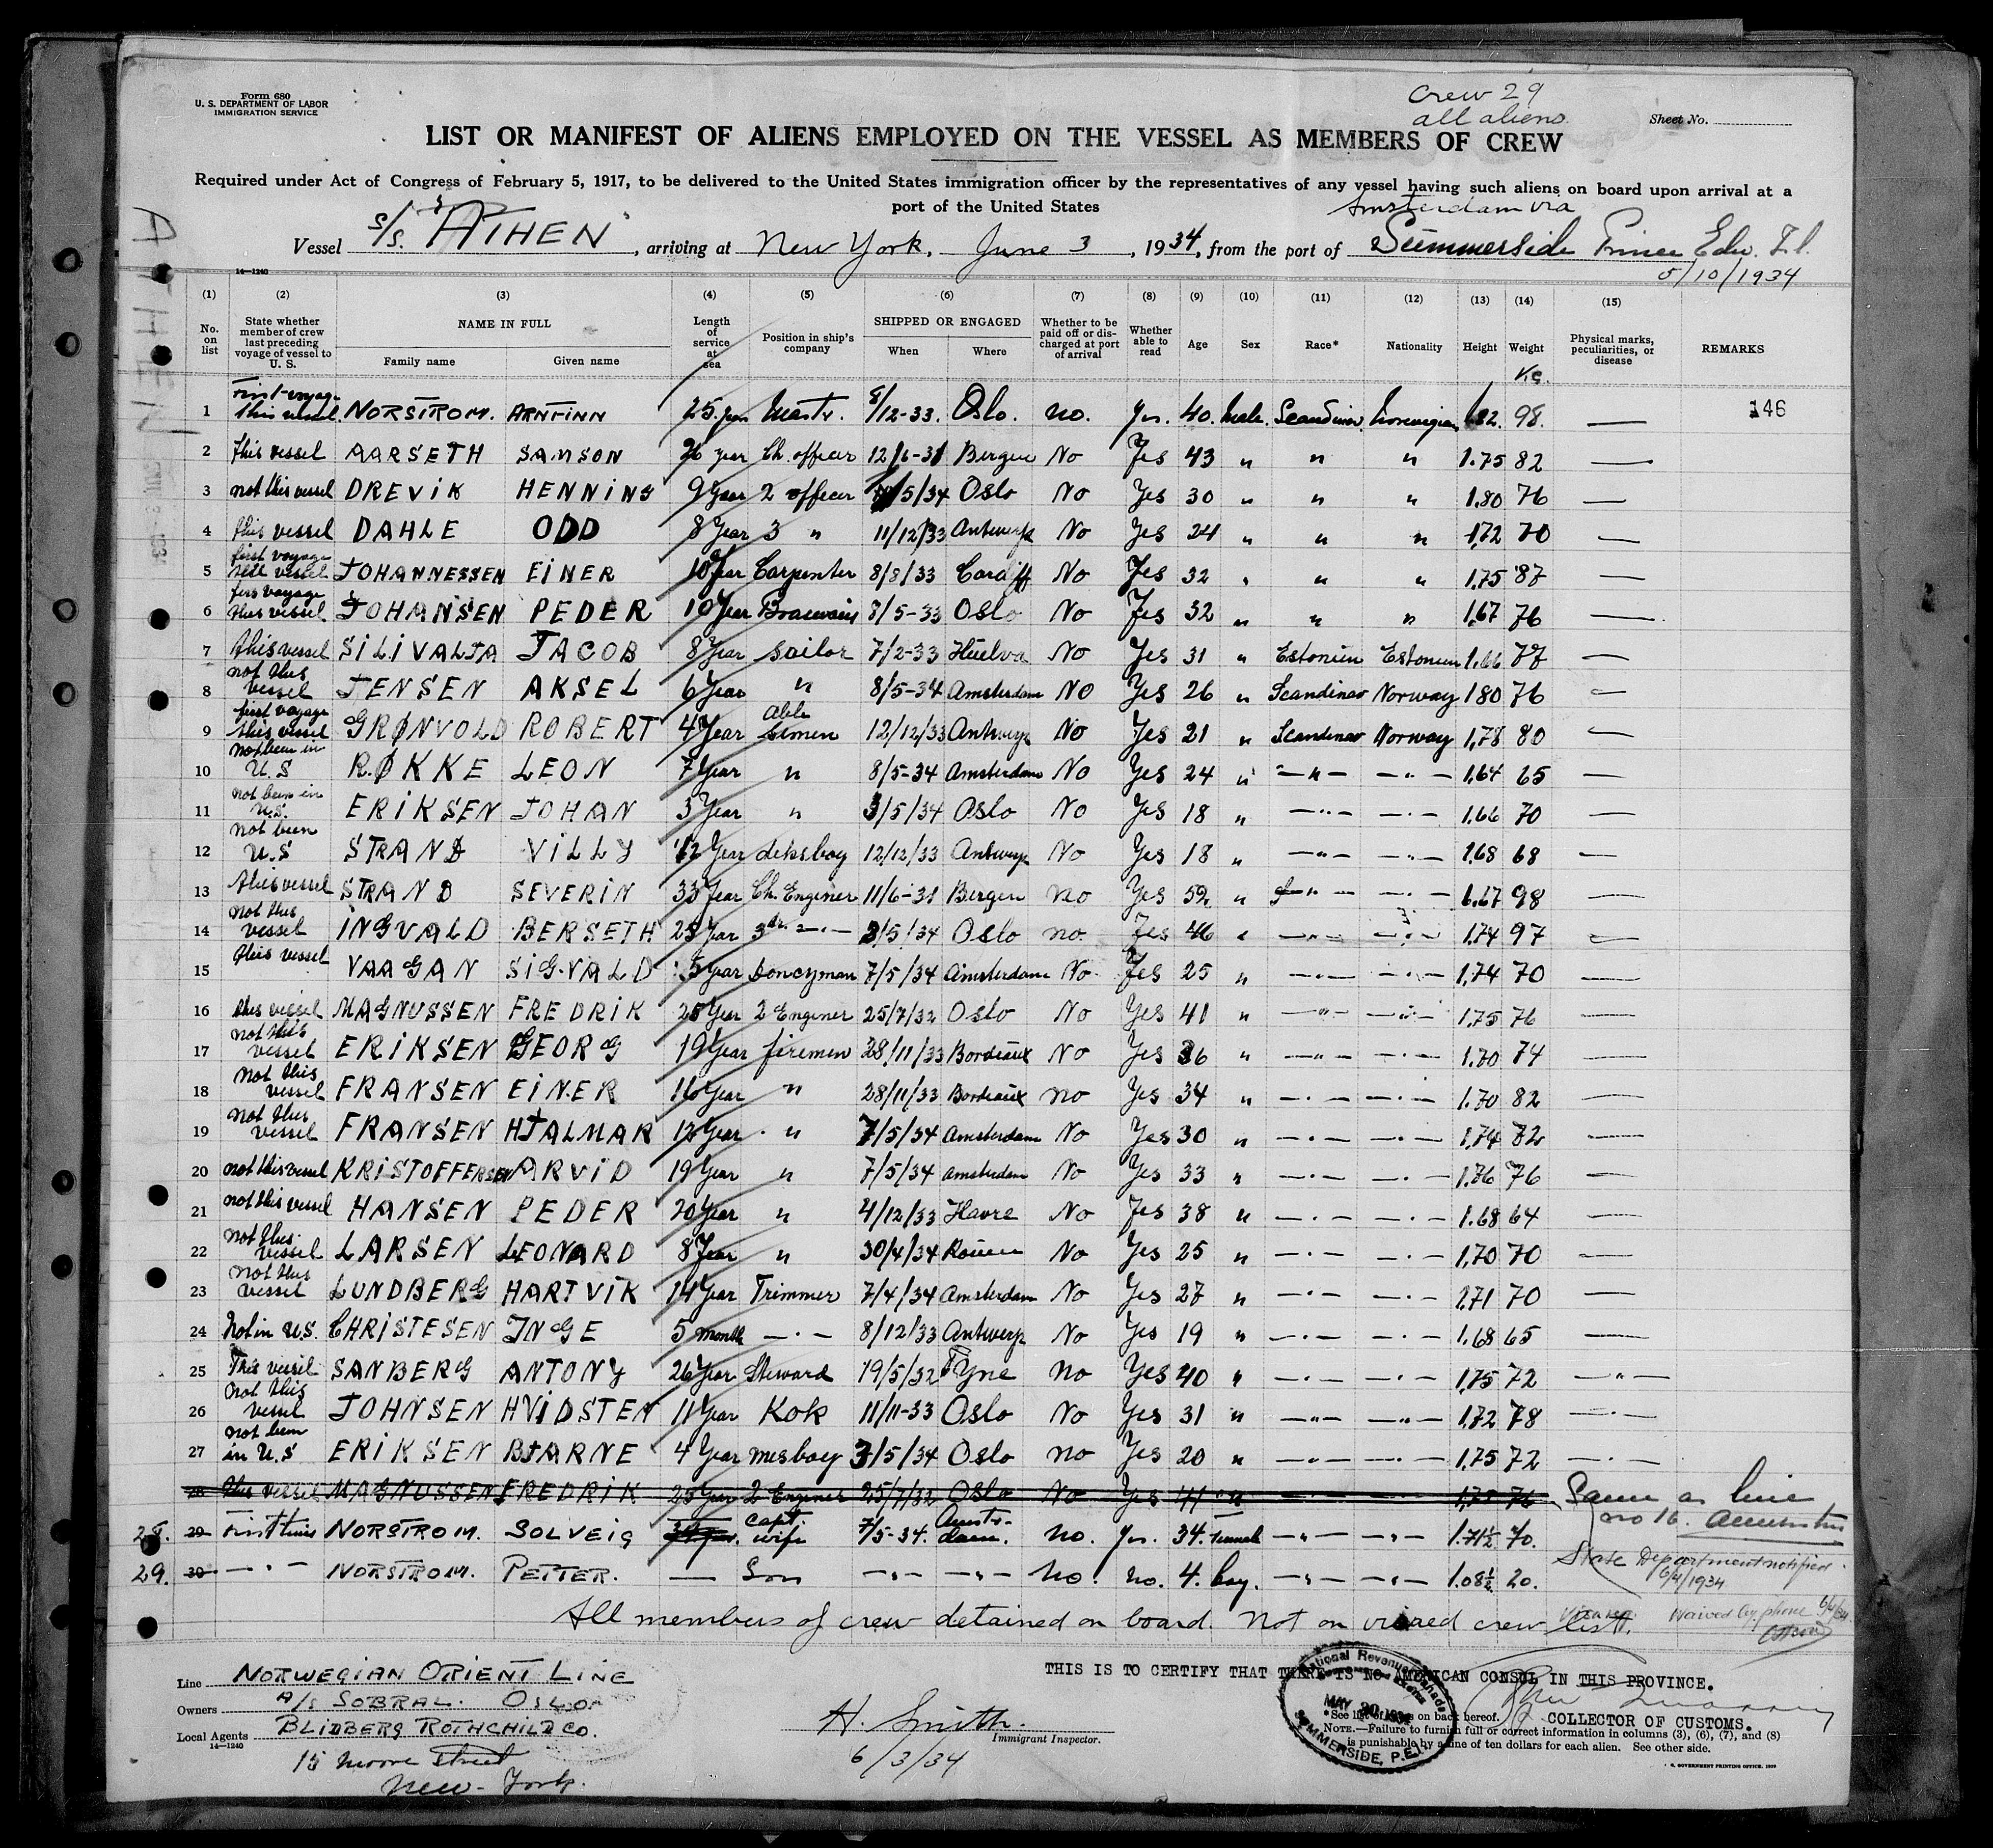 Form 680
U. S. DEPARTMENT OF LABOR
IMMIGRATION SERVICE
Crew 29
all aliens
Sheet No.
LIST OR MANIFEST OF ALIENS EMPLOYED ON THE VESSEL AS MEMBERS OF CREW
Required under Act of Congress of February 5, 1917, to be delivered to the United States immigration officer by the representatives of any vessel having such aliens on board upon arrival at a
port of the United States
Amsterdam via
Vessel S/S. "ATHEN", arriving at New York, June 3, 1934, from the port of Summerside Prince Edw. Isl.
5/10/1934
ATHEN
14—1240
(1) (2) (3) (4) (5) (6) (7) (8) (9) (10) (11) (12) (13) (14) (15)
No. on list State whether member of crew last preceding voyage of vessel to U. S. NAME IN FULL Family name Given name Length of service at sea Position in ship's company SHIPPED OR ENGAGED When Where Whether to be paid off or discharged at port of arrival Whether able to read Age Sex Race* Nationality Height Weight Physical marks, peculiarities, or disease REMARKS
Kg.
1 First voyage this vessel. NORSTROM. ARNFINN 25 years Mastr. 8/12-33. Oslo. no. Yes. 40. Male. Scandinav. Norwegian 1.82. 98. — 146
2 this vessel AARSETH SAMSON 26 year Ch. officer 12/6-31 Bergen No Yes 43 " " " 1.75 82 —
3 not this vessel DREVIK HENNING 9 year 2 officer /5/34 Oslo No Yes 30 " " " 1.80 76 —
4 this vessel DAHLE ODD 8 Year 3 " 11/12/33 Antwerp No Yes 24 " " " 1,72 70 —
5 first voyage this vessel JOHANNESSEN EINER 10 Year Carpenter 8/8/33 Cardiff No Yes 32 " " " 1.75 87 —
6 first voyage this vessel JOHANSEN PEDER 10 Year 8/5-33 Oslo No Yes 32 " " " 1,67 76 —
7 this vessel SILIVALJA JACOB 8 Year sailor 7/2-33 Huelva No Yes 31 " Estonien Estonien 1.66 77 —
8 not this vessel JENSEN AKSEL 6 Year " 8/5-34 Amsterdam NO Yes 26 " Scandinav Norway 1.80 76 —
9 first voyage this vessel GRØNVOLD ROBERT 4 Year able semen 12/12/33 Antwerp No Yes 21 " Scandinav Norway 1,78 80 —
10 not been in U.S RØKKE LEON 7 Year " 8/5-34 Amsterdam No Yes 24 " — " — — " — 1,64 65 —
11 not been in U.S. ERIKSEN JOHAN 3 Year " 3/5/34 Oslo No Yes 18 " — " — — " — 1,66 70 —
12 not been U.S STRAND VILLY 1/2 Year deksboy 12/12/33 Antwerp No Yes 18 " — " — — " — 1,68 68 —
13 this vessel STRAND SEVERIN 33 Year Ch. Enginer 11/6-31 Bergen no Yes 52 " — " — — " — 1,67 98 —
14 not this vessel INGVALD BERSETH 25 Year 3rd — " — 3/5/34 Oslo no Yes 46 " — " — — " — 1,74 97 —
15 this vessel VAAGAN SIGVALD 5 Year Donkeyman 7/5/34 Amsterdam No. Yes 25 " — " — — " — 1,74 70 —
16 this vessel MAGNUSSEN FREDRIK 25 Year 2 Enginer 25/7/32 Oslo No Yes 41 " — " — — " — 1,75 76 —
17 not this vessel ERIKSEN GEORG 19 Year firemen 28/11/33 Bordeaux No Yes 36 " — " — — " — 1.70 74 —
18 not this vessel FRANSEN EINER 16 Year " 28/11/33 Bordeaux no Yes 34 " — " — — " — 1.70 82 —
19 not this vessel FRANSEN HJALMAR 12 Year " 7/5/34 Amsterdam No Yes 30 " — " — — " — 1,74 72 —
20 not this vessel KRISTOFFERSEN ARVID 19 Year " 7/5/34 amsterdam No Yes 33 " — " — — " — 1.76 76 —
21 not this vessel HANSEN PEDER 20 Year " 4/12/33 Havre No Yes 38 " — " — — " — 1.68 64 —
22 not this vessel LARSEN LEONARD 8 Year " 30/4/34 Rouen No Yes 25 " — " — — " — 1,70 70 —
23 not this vessel LUNDBERG HARTVIK 14 Year Trimmer 7/4/34 Amsterdam No Yes 27 " — " — — " — 1,71 70 —
24 Not in U.S. CHRISTESEN INGE 5 month — " — 8/12/33 Antwerp No Yes 19 " — " — — " — 1.68 65 —
25 This vessel SANBERG ANTONY 26 Year Steward 19/5/32 Tyne no Yes 40 " — " — — " — 1,75 72 — " —
26 not this vessel JOHNSEN HVIDSTEN 11 Year Kok 11/11-33 Oslo No Yes 31 " — " — — " — 1,72 78 — " —
27 not been in U.S ERIKSEN BJARNE 4 Year mesboy 3/5/34 Oslo no Yes 20 " — " — — " — 1,75 72 — " —
28 this vessel MAGNUSSEN FREDRIK 25 Year 2 Enginer 25/7/32 Oslo No Yes 41 " 1,75 76 Same as line no 16.
28. 29 First time NORSTROM. SOLVEIG capt. wife 7/5-34. Amster-dam. no. Yes. 34. Female — " — — " — 1.71½ 70.
29. 30 — " — NORSTROM. PETTER. — Son — " — — " — No. No. 4. boy. — " — — " — 1.08½ 20. State Department notified 6/4/1934
All members of crew detained on board. Not on visaed crew list. Waived by phone 6/4/34
Line NORWEGIAN ORIENT LINE
Owners A/S SOBRAL. OSLO
Local Agents BLIDBERG ROTHCHILD CO.
14—1240
15 Moore Street
New-York.
H. Smith.
Immigrant Inspector.
6/3/34
THIS IS TO CERTIFY THAT THERE IS NO AMERICAN CONSUL IN THIS PROVINCE.
COLLECTOR OF CUSTOMS.
National Revenue Canada
MAY 30 1934
SUMMERSIDE, P.E.I.
*See list of races on back hereof.
NOTE.—Failure to furnish full or correct information in columns (3), (6), (7), and (8)
is punishable by a fine of ten dollars for each alien. See other side.
U. S. GOVERNMENT PRINTING OFFICE: 1929